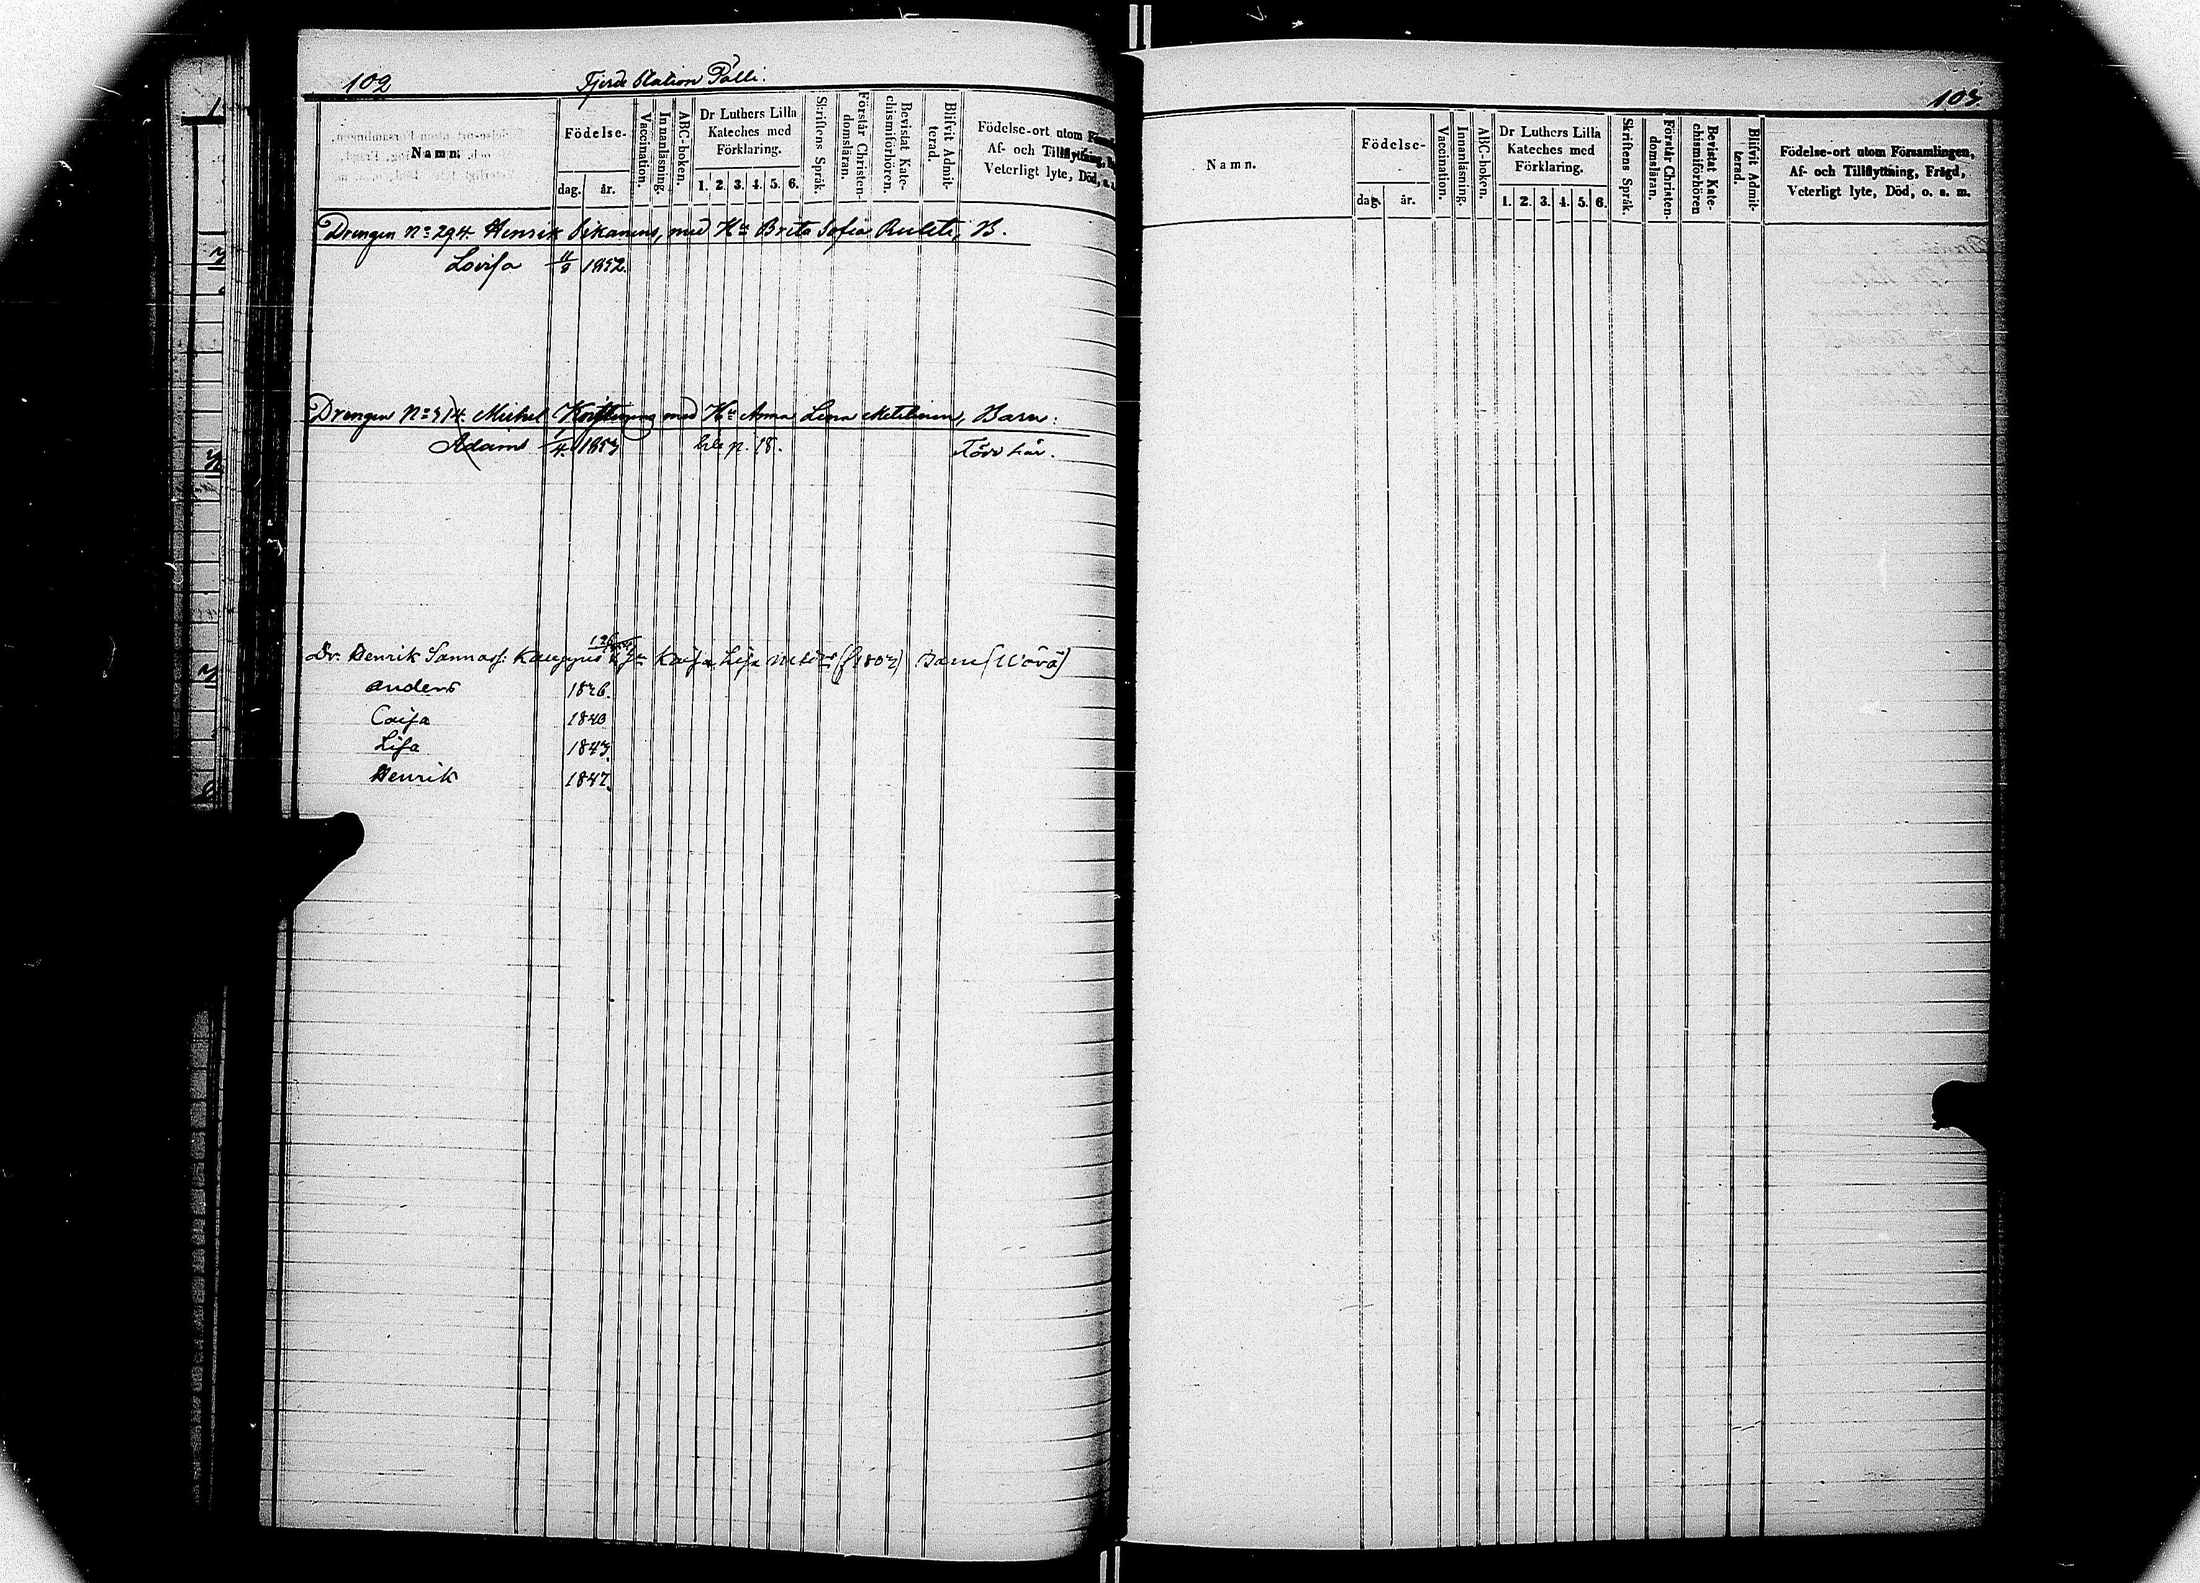 102 Fjerde Station Pälli.
Namn. Födelse- dag. år. Vaccination. Innanläsning. ABC-boken. Dr Luthers Lilla Kateches med Förklaring. 1. 2. 3. 4. 5. 6. Skriftens Språk. Förstår Christendomsläran. Bevistat Katechismiförhören. Blifvit Admitterad. Födelse-ort utom
Af- och Tillflyttning,
Veterligt lyte, Död,
Drengen No 294. Henrik med Hu Brita Sofia B.
Lovisa 11/8 1852.
Drengen No 314. Michel med Hu Anna Lena Barn:
Adam 1/4. 1853 p. 18. här.
Dr. Henrik Kaisa Lisa Barn
Anders 1826.
Caisa 1840
Lisa 1843.
Henrik 1847.
103.
Namn. Födelse- dag. år. Vaccination. Innanläsning. ABC-boken. Dr Luthers Lilla Kateches med Förklaring. 1. 2. 3. 4. 5. 6. Skriftens Språk. Förstår Christendomsläran. Bevistat Katechismiförhören Blifvit Admitterad. Födelse-ort utom Församlingen,
Af- och Tillflyttning, Frägd,
Veterligt lyte, Död, o. a. m.